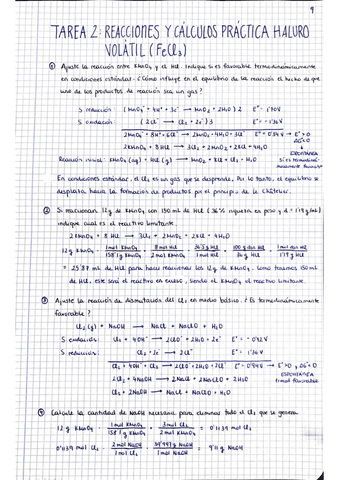 9
TAREA 2: REACCIONES Y CÁLCULOS PRÁCTICA HALURO
VOLÁTIL (FeCl₃)
① Ajuste la reacción entre KMnO₄ y el HCl. Indique si es favorable termodinámicamente
en condiciones estándar. ¿Cómo influye en el equilibrio de la reacción el hecho de que
uno de los productos de reacción sea un gas?
S. reducción: (MnO₄⁻ + 4H⁺ + 3e⁻ → MnO₂ + 2H₂O) 2 E° = 1'70V
S. oxidación: (2Cl⁻ → Cl₂ + 2e⁻) 3 E° = -1'36V
2MnO₄⁻ + 8H⁺ + 6Cl⁻ → 2MnO₂ + 4H₂O + 3Cl₂ E° = 0'34V → E° > 0
2KMnO₄ + 8HCl → 3Cl₂ + 2MnO₂ + 2KCl + 4H₂O
ΔG° < 0
ESPONTÁNEA
Sí es termodinámicamente favorable
Reacción inicial: KMnO₄ (aq) + HCl (g) → MnO₂ + KCl + Cl₂ + H₂O
En condiciones estándar, el Cl₂ es un gas que se desprende. Por lo tanto, el equilibrio se
desplaza hacia la formación de productos por el principio de le Châtelier.
② Si reaccionan 12 g de KMnO₄ con 150 ml de HCl (36% riqueza en peso y d = 1'19 g/ml)
indique cual es el reactivo limitante.
2KMnO₄ + 8HCl → 3Cl₂ + 2MnO₂ + 2KCl + 4H₂O
12 g KMnO₄ · 1 mol KMnO₄ / 158'1 g KMnO₄ · 8 mol HCl / 2 mol KMnO₄ · 36'5 g HCl / 1 mol HCl · 100 g dis HCl / 36 g HCl · 1 ml dis HCl / 1'19 g HCl
= 25'87 ml de HCl para hacer reaccionar los 12 g de KMnO₄. Como tenemos 150 ml
de HCl, este será el reactivo en exceso, siendo el KMnO₄ el reactivo limitante.
③ Ajuste la reacción de dismutación del Cl₂ en medio básico. ¿Es termodinámicamente
favorable?
Cl₂ (g) + NaOH → NaCl + NaClO + H₂O
S. oxidación: Cl₂ + 4OH⁻ → 2ClO⁻ + 2H₂O + 2e⁻ E° = -0'42V
S. reducción: Cl₂ + 2e⁻ → 2Cl⁻ E° = 1'36V
Cl₂ + 4OH⁻ + Cl₂ → 2ClO⁻ + 2H₂O + 2Cl⁻ E° = 0'94V → E° > 0 y ΔG° < 0
2Cl₂ + 4NaOH → 2NaCl + 2NaClO + 2H₂O
ESPONTÁNEA
Cl₂ + 2NaOH → NaCl + NaClO + H₂O
④ Calcule la cantidad de NaOH necesaria para eliminar todo el Cl₂ que se genera
12 g KMnO₄ · 1 mol KMnO₄ / 158'1 g KMnO₄ · 3 mol Cl₂ / 2 mol KMnO₄ = 0'1139 mol Cl₂
0'1139 mol Cl₂ · 2 mol NaOH / 1 mol Cl₂ · 39'997 g NaOH / 1 mol NaOH = 9'11 g NaOH